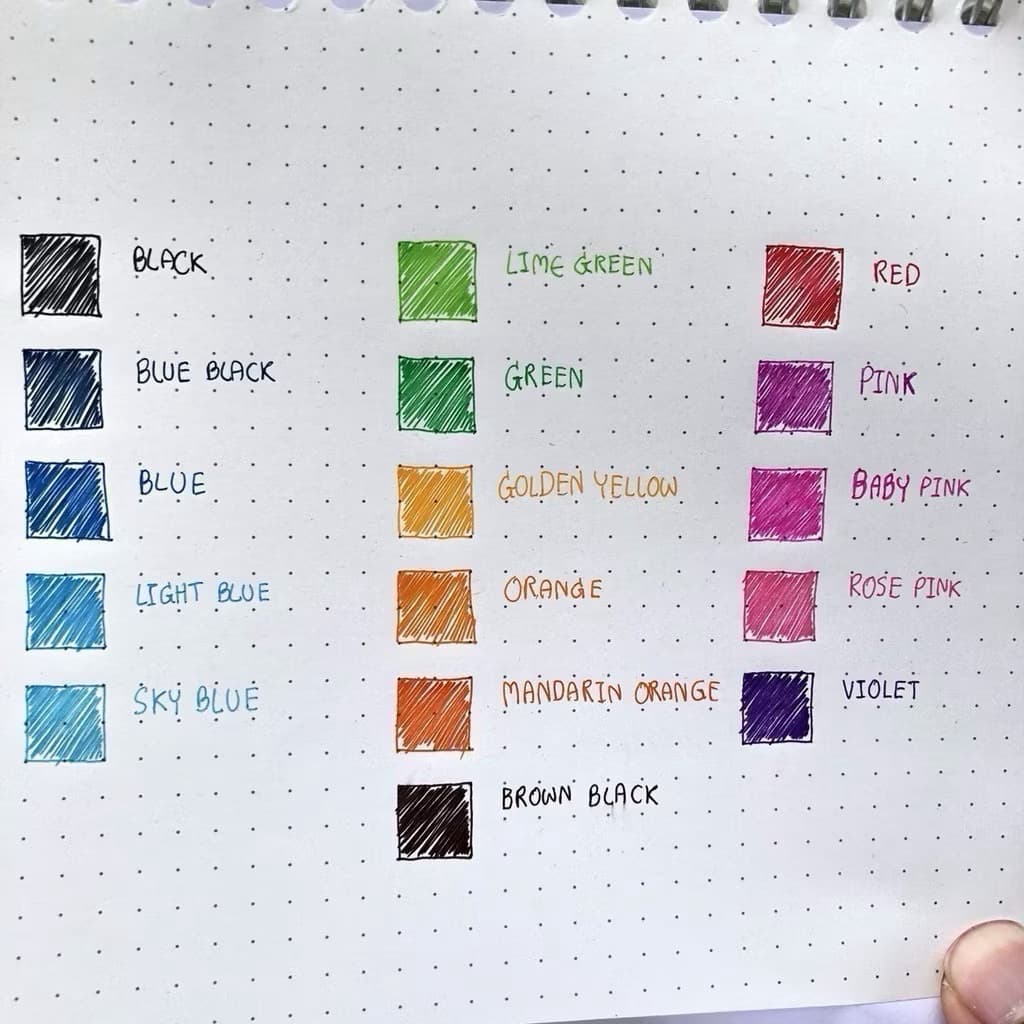 BLACK
BLUE BLACK
BLUE
LIGHT BLUE
SKY BLUE
LIME GREEN
GREEN
GOLDEN YELLOW
ORANGE
MANDARIN ORANGE
BROWN BLACK
RED
PINK
BABY PINK
ROSE PINK
VIOLET